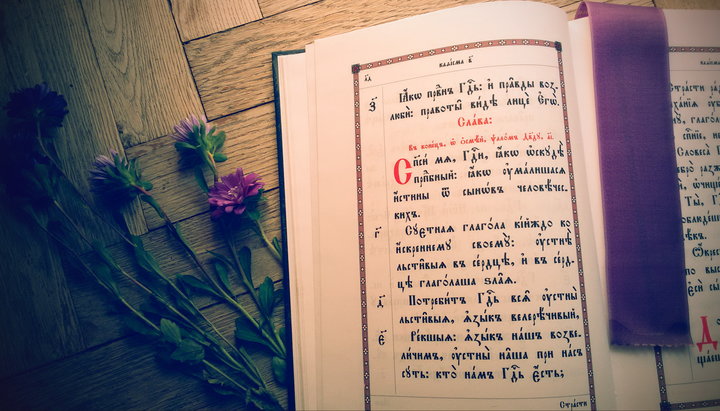 каѳісма в҃
з҃ Ꙗ҆́кѡ прв҃нъ гдⷭ҇ь: и҆ пра̑вды воз-
любѝ: правоты̑ ви́дѣ лицѐ є҆гѡ̀.
Сла́ва:
Въ коне́цъ, ѡ҆ ѻ҆смѣ́й, ѱало́мъ дв҃дꙋ, а҃і.
Спⷭ҇и́ мѧ, гдⷭ҇и, ꙗ҆́кѡ ѡ҆скꙋдѣ̀
прпⷣбный: ꙗ҆́кѡ ᲂу҆ма́лишасѧ
и҆́стины ѿ сынѡ́въ человѣ́чес-
кихъ.
г҃ Сꙋ́єтнаѧ глаго́ла кі́йждо ко
и҆́скреннемꙋ своемꙋ̀: ᲂу҆стнѣ̀
льсти̑выѧ въ се́рдцѣ, и҆ въ се́рд-
цѣ глаго́лаша ѕла̑ѧ.
д҃ Потреби́тъ гдⷭ҇ь всѧ̑ ᲂу҆стны̀
льсти̑выѧ, ѧ҆зы́къ велерѣ́чивый,
є҃ Ре́кшыѧ: ѧ҆зы́къ на́шъ возве-
ли́чимъ, ᲂу҆стны̀ на́ша при на́съ
сꙋ́ть: кто̀ на́мъ гдⷭ҇ь є҆́сть;
Стра́сти